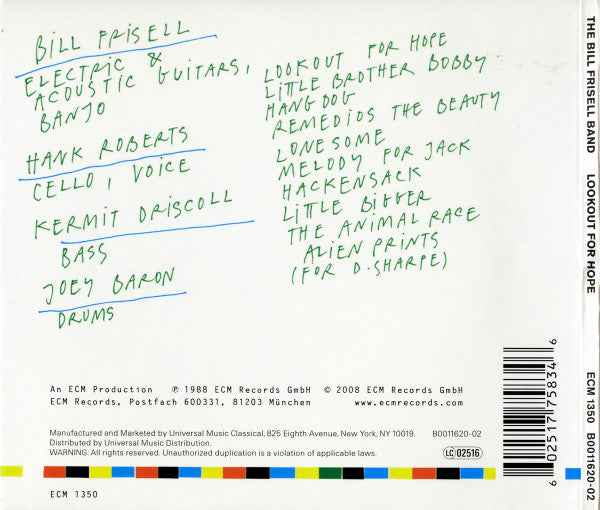 BILL FRISELL
ELECTRIC &
ACOUSTIC GUITARS,
BANJO
HANK ROBERTS
CELLO, VOICE
KERMIT DRISCOLL
BASS
JOEY BARON
DRUMS
LOOKOUT FOR HOPE
LITTLE BROTHER BOBBY
HANG DOG
REMEDIOS THE BEAUTY
LONESOME
MELODY FOR JACK
HACKENSACK
LITTLE BIGGER
THE ANIMAL RACE
ALIEN PRINTS
(FOR D. SHARPE)
An ECM Production ℗ 1988 ECM Records GmbH © 2008 ECM Records GmbH
ECM Records, Postfach 600331, 81203 München www.ecmrecords.com
Manufactured and Marketed by Universal Music Classical, 825 Eighth Avenue, New York, NY 10019. B0011620-02
Distributed by Universal Music Distribution.
WARNING: All rights reserved. Unauthorized duplication is a violation of applicable laws. LC 02516
ECM 1350
6 02517 75834 6
THE BILL FRISELL BAND LOOKOUT FOR HOPE ECM 1350 B0011620-02